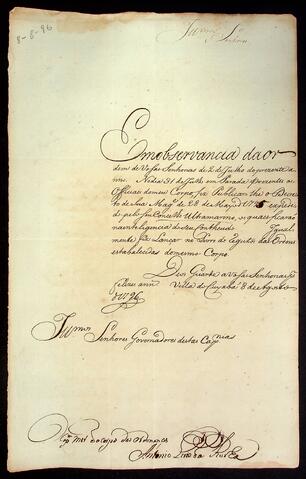 8-8-96
Senhores
Em observancia da or
dem de Vossas Senhorias de 2 de Julho do prezente a
no. No dia 31 de Julho em Parada prezentes os
Officiaes do meu Corpo, fiz Publicar lhe o Decre
to de Sua Mag.e de 28 de Mayo de 1795 expedi
do pelo seu Concelho Ultramarino, e que ficarão
na inteligencia do seu contheudo Igual
mente fiz Lançar no Livro do Registo das Ordens
estabelecidas do mesmo Corpo.
Deos Guarde a Vossas Senhorias
felices ann Villa do Cuyabá 8 de Agosto
de 1796
Senhores Governadores destas Cap.nias
das Ordenanças
Antonio